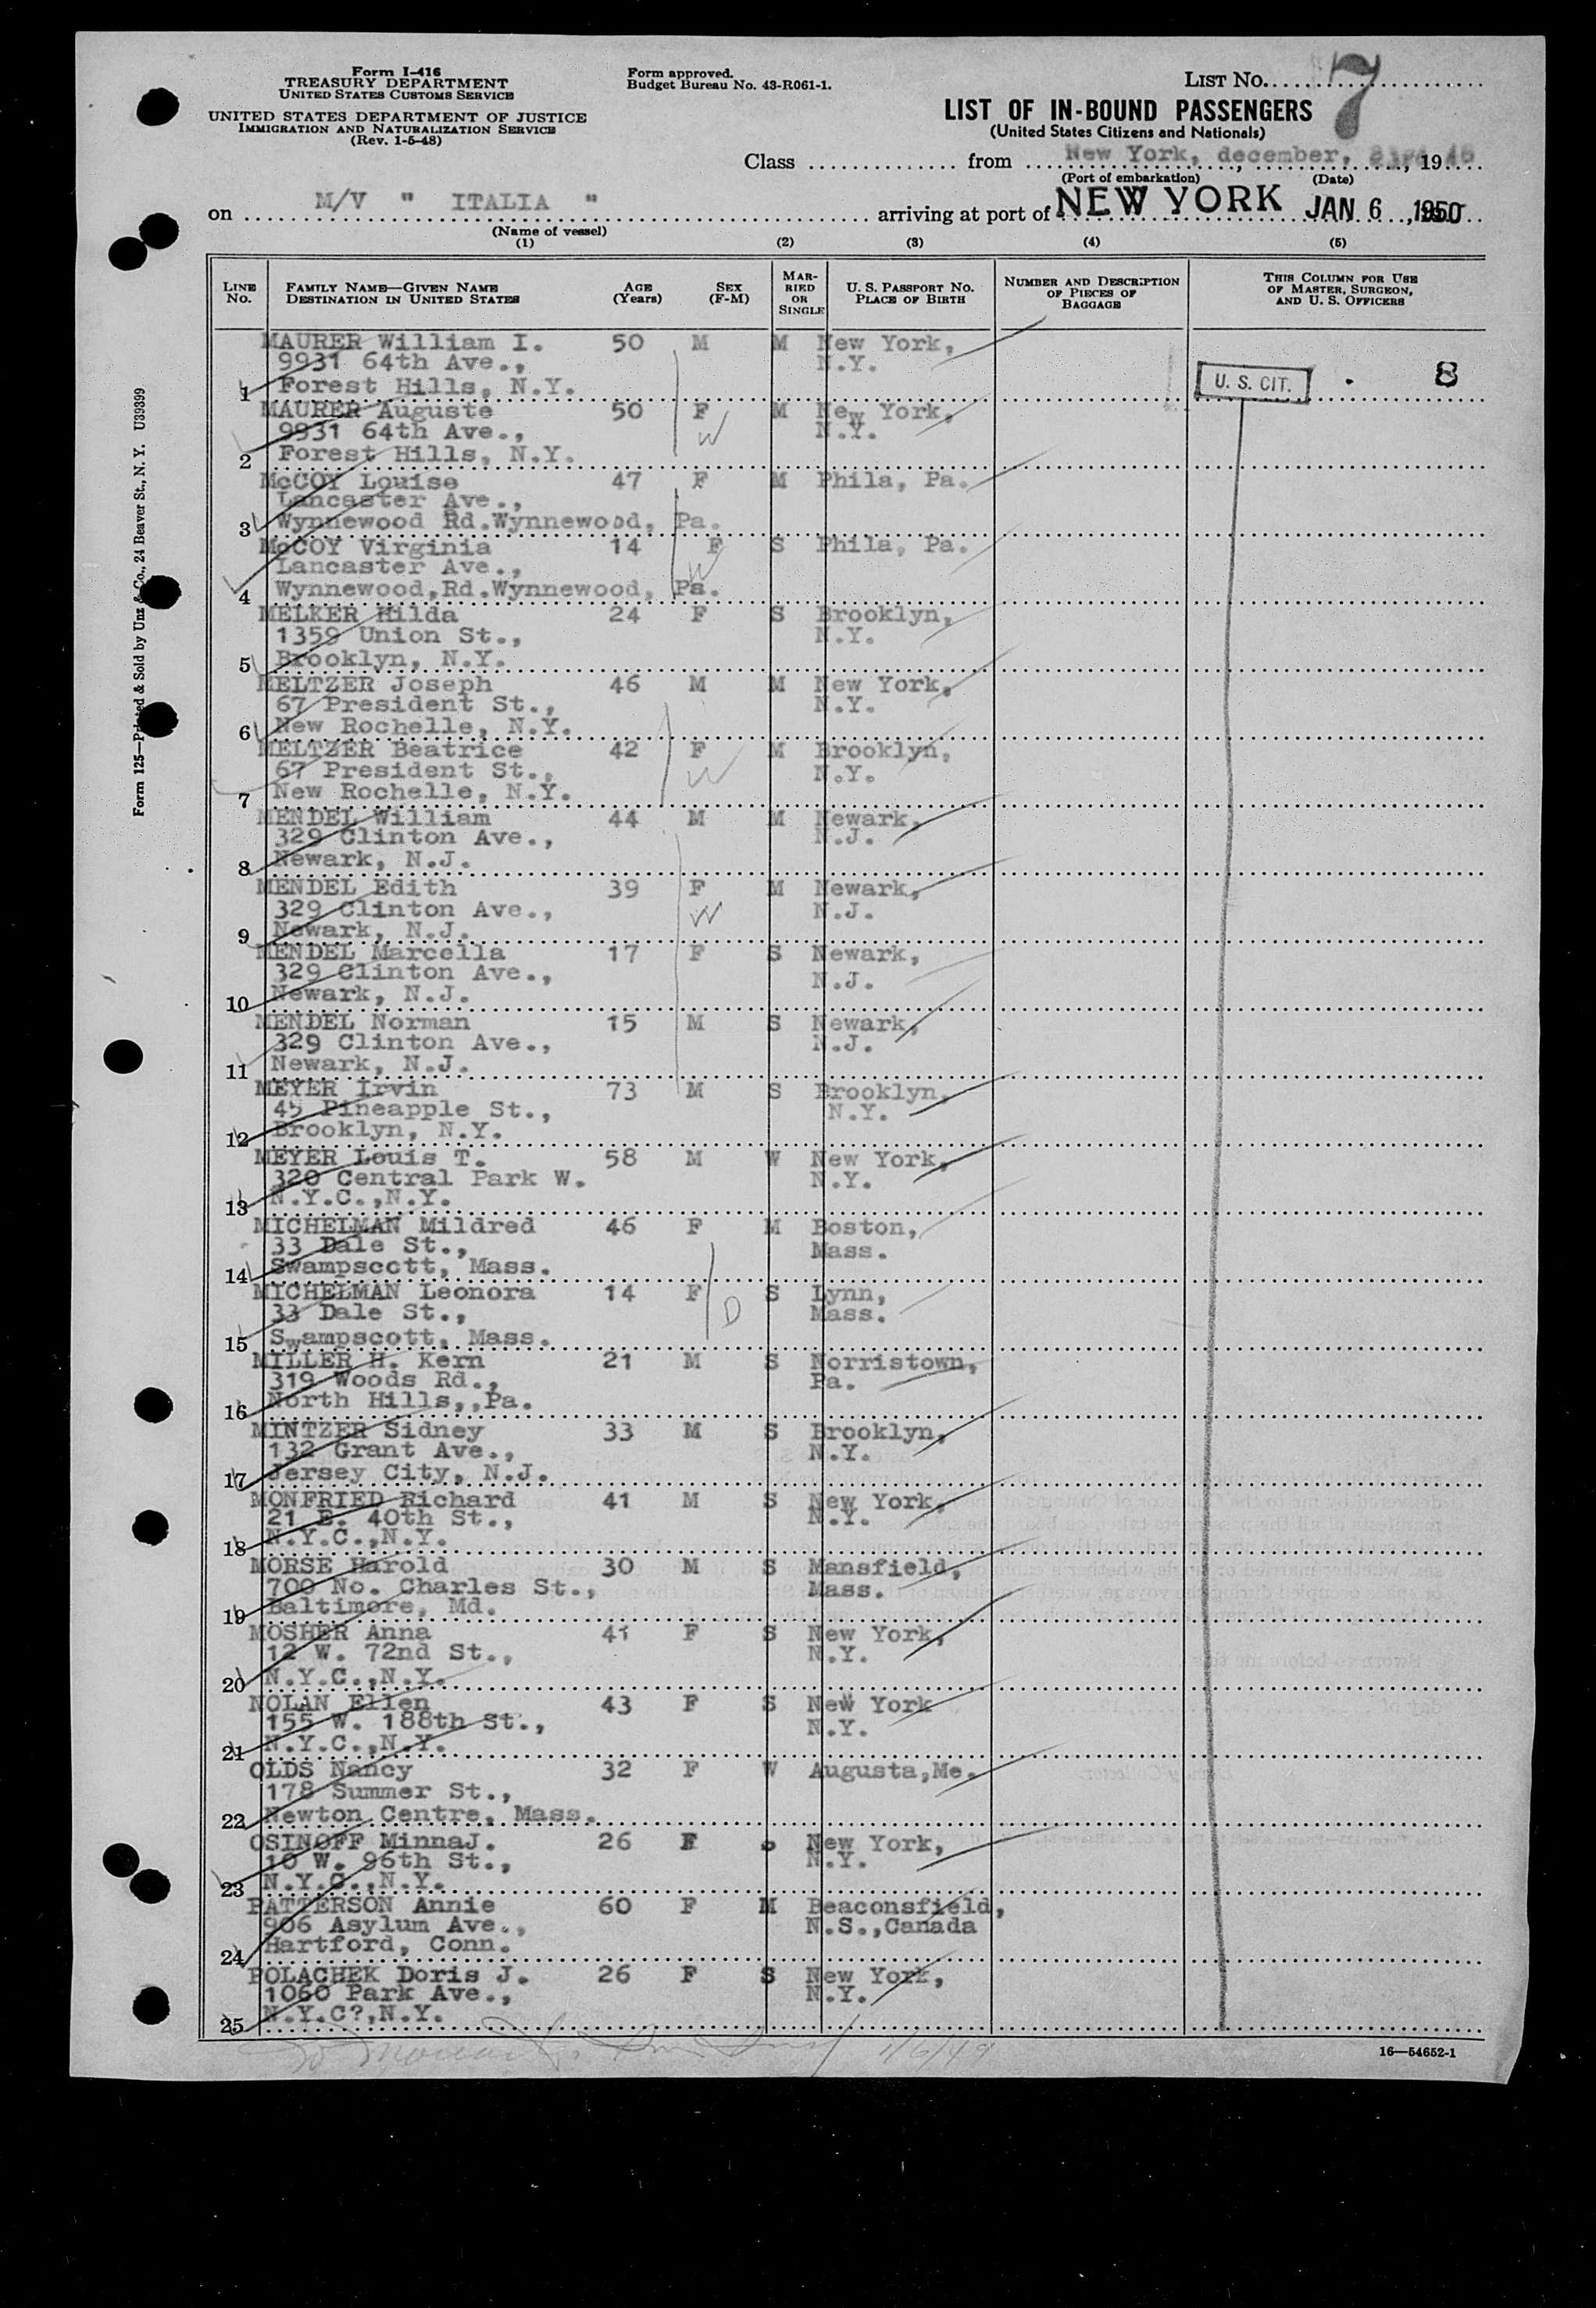 Form I-416
TREASURY DEPARTMENT
UNITED STATES CUSTOMS SERVICE
UNITED STATES DEPARTMENT OF JUSTICE
IMMIGRATION AND NATURALIZATION SERVICE
(Rev. 1-5-48)
Form approved.
Budget Bureau No. 43-R061-1.
LIST No. 7
LIST OF IN-BOUND PASSENGERS
(United States Citizens and Nationals)
Class from New York, december, 19
(Port of embarkation) (Date)
on M/V " ITALIA " arriving at port of NEW YORK JAN 6, 1950
(Name of vessel)
(1) (2) (3) (4) (5)
LINE No. FAMILY NAME—GIVEN NAME DESTINATION IN UNITED STATES AGE (Years) SEX (F-M) MARRIED OR SINGLE U. S. PASSPORT NO. PLACE OF BIRTH NUMBER AND DESCRIPTION OF PIECES OF BAGGAGE THIS COLUMN FOR USE OF MASTER, SURGEON, AND U. S. OFFICERS
MAURER William I. 50 M M New York,
9931 64th Ave., N.Y.
1 Forest Hills, N.Y. U. S. CIT. 8
MAURER Auguste 50 F M New York,
9931 64th Ave., W N.Y.
2 Forest Hills, N.Y.
McCOY Louise 47 F M Phila, Pa.
Lancaster Ave.,
3 Wynnewood Rd.Wynnewood, Pa.
McCOY Virginia 14 F S Phila, Pa.
Lancaster Ave., W
4 Wynnewood,Rd.Wynnewood, Pa.
MELKER Hilda 24 F S Brooklyn,
1359 Union St., N.Y.
5 Brooklyn, N.Y.
MELTZER Joseph 46 M M New York,
67 President St., N.Y.
6 New Rochelle, N.Y.
MELTZER Beatrice 42 F M Brooklyn,
67 President St., W N.Y.
7 New Rochelle, N.Y.
MENDEL William 44 M M Newark,
329 Clinton Ave., N.J.
8 Newark, N.J.
MENDEL Edith 39 F M Newark,
329 Clinton Ave., W N.J.
9 Newark, N.J.
MENDEL Marcella 17 F S Newark,
329 Clinton Ave., N.J.
10 Newark, N.J.
MENDEL Norman 15 M S Newark,
329 Clinton Ave., N.J.
11 Newark, N.J.
MEYER Irvin 73 M S Brooklyn,
45 Pineapple St., N.Y.
12 Brooklyn, N.Y.
MEYER Louis T. 58 M W New York,
320 Central Park W. N.Y.
13 N.Y.C.,N.Y.
MICHELMAN Mildred 46 F M Boston,
33 Dale St., Mass.
14 Swampscott, Mass.
MICHELMAN Leonora 14 F S Lynn,
33 Dale St., D Mass.
15 Swampscott, Mass.
MILLER H. Kern 21 M S Norristown,
319 Woods Rd., Pa.
16 North Hills,,Pa.
MINTZER Sidney 33 M S Brooklyn,
132 Grant Ave., N.Y.
17 Jersey City, N.J.
MONFRIED Richard 41 M S New York,
21 E. 40th St., N.Y.
18 N.Y.C.,N.Y.
MORSE Harold 30 M S Mansfield,
700 No. Charles St., Mass.
19 Baltimore, Md.
MOSHER Anna 41 F S New York,
12 W. 72nd St., N.Y.
20 N.Y.C.,N.Y.
NOLAN Ellen 43 F S New York
155 W. 188th St., N.Y.
21 N.Y.C.,N.Y.
OLDS Nancy 32 F W Augusta,Me.
178 Summer St.,
22 Newton Centre, Mass.
OSINOFF MinnaJ. 26 F New York,
10 W. 96th St., N.Y.
23 N.Y.C.,N.Y.
PATTERSON Annie 60 F M Beaconsfield,
906 Asylum Ave., N.S.,Canada
24 Hartford, Conn.
POLACHEK Doris J. 26 F S New York,
1060 Park Ave., N.Y.
25 N.Y.C?,N.Y.
1/6/49
16—54652-1
Form 125—Printed & Sold by Unz & Co., 24 Beaver St., N. Y. U39399